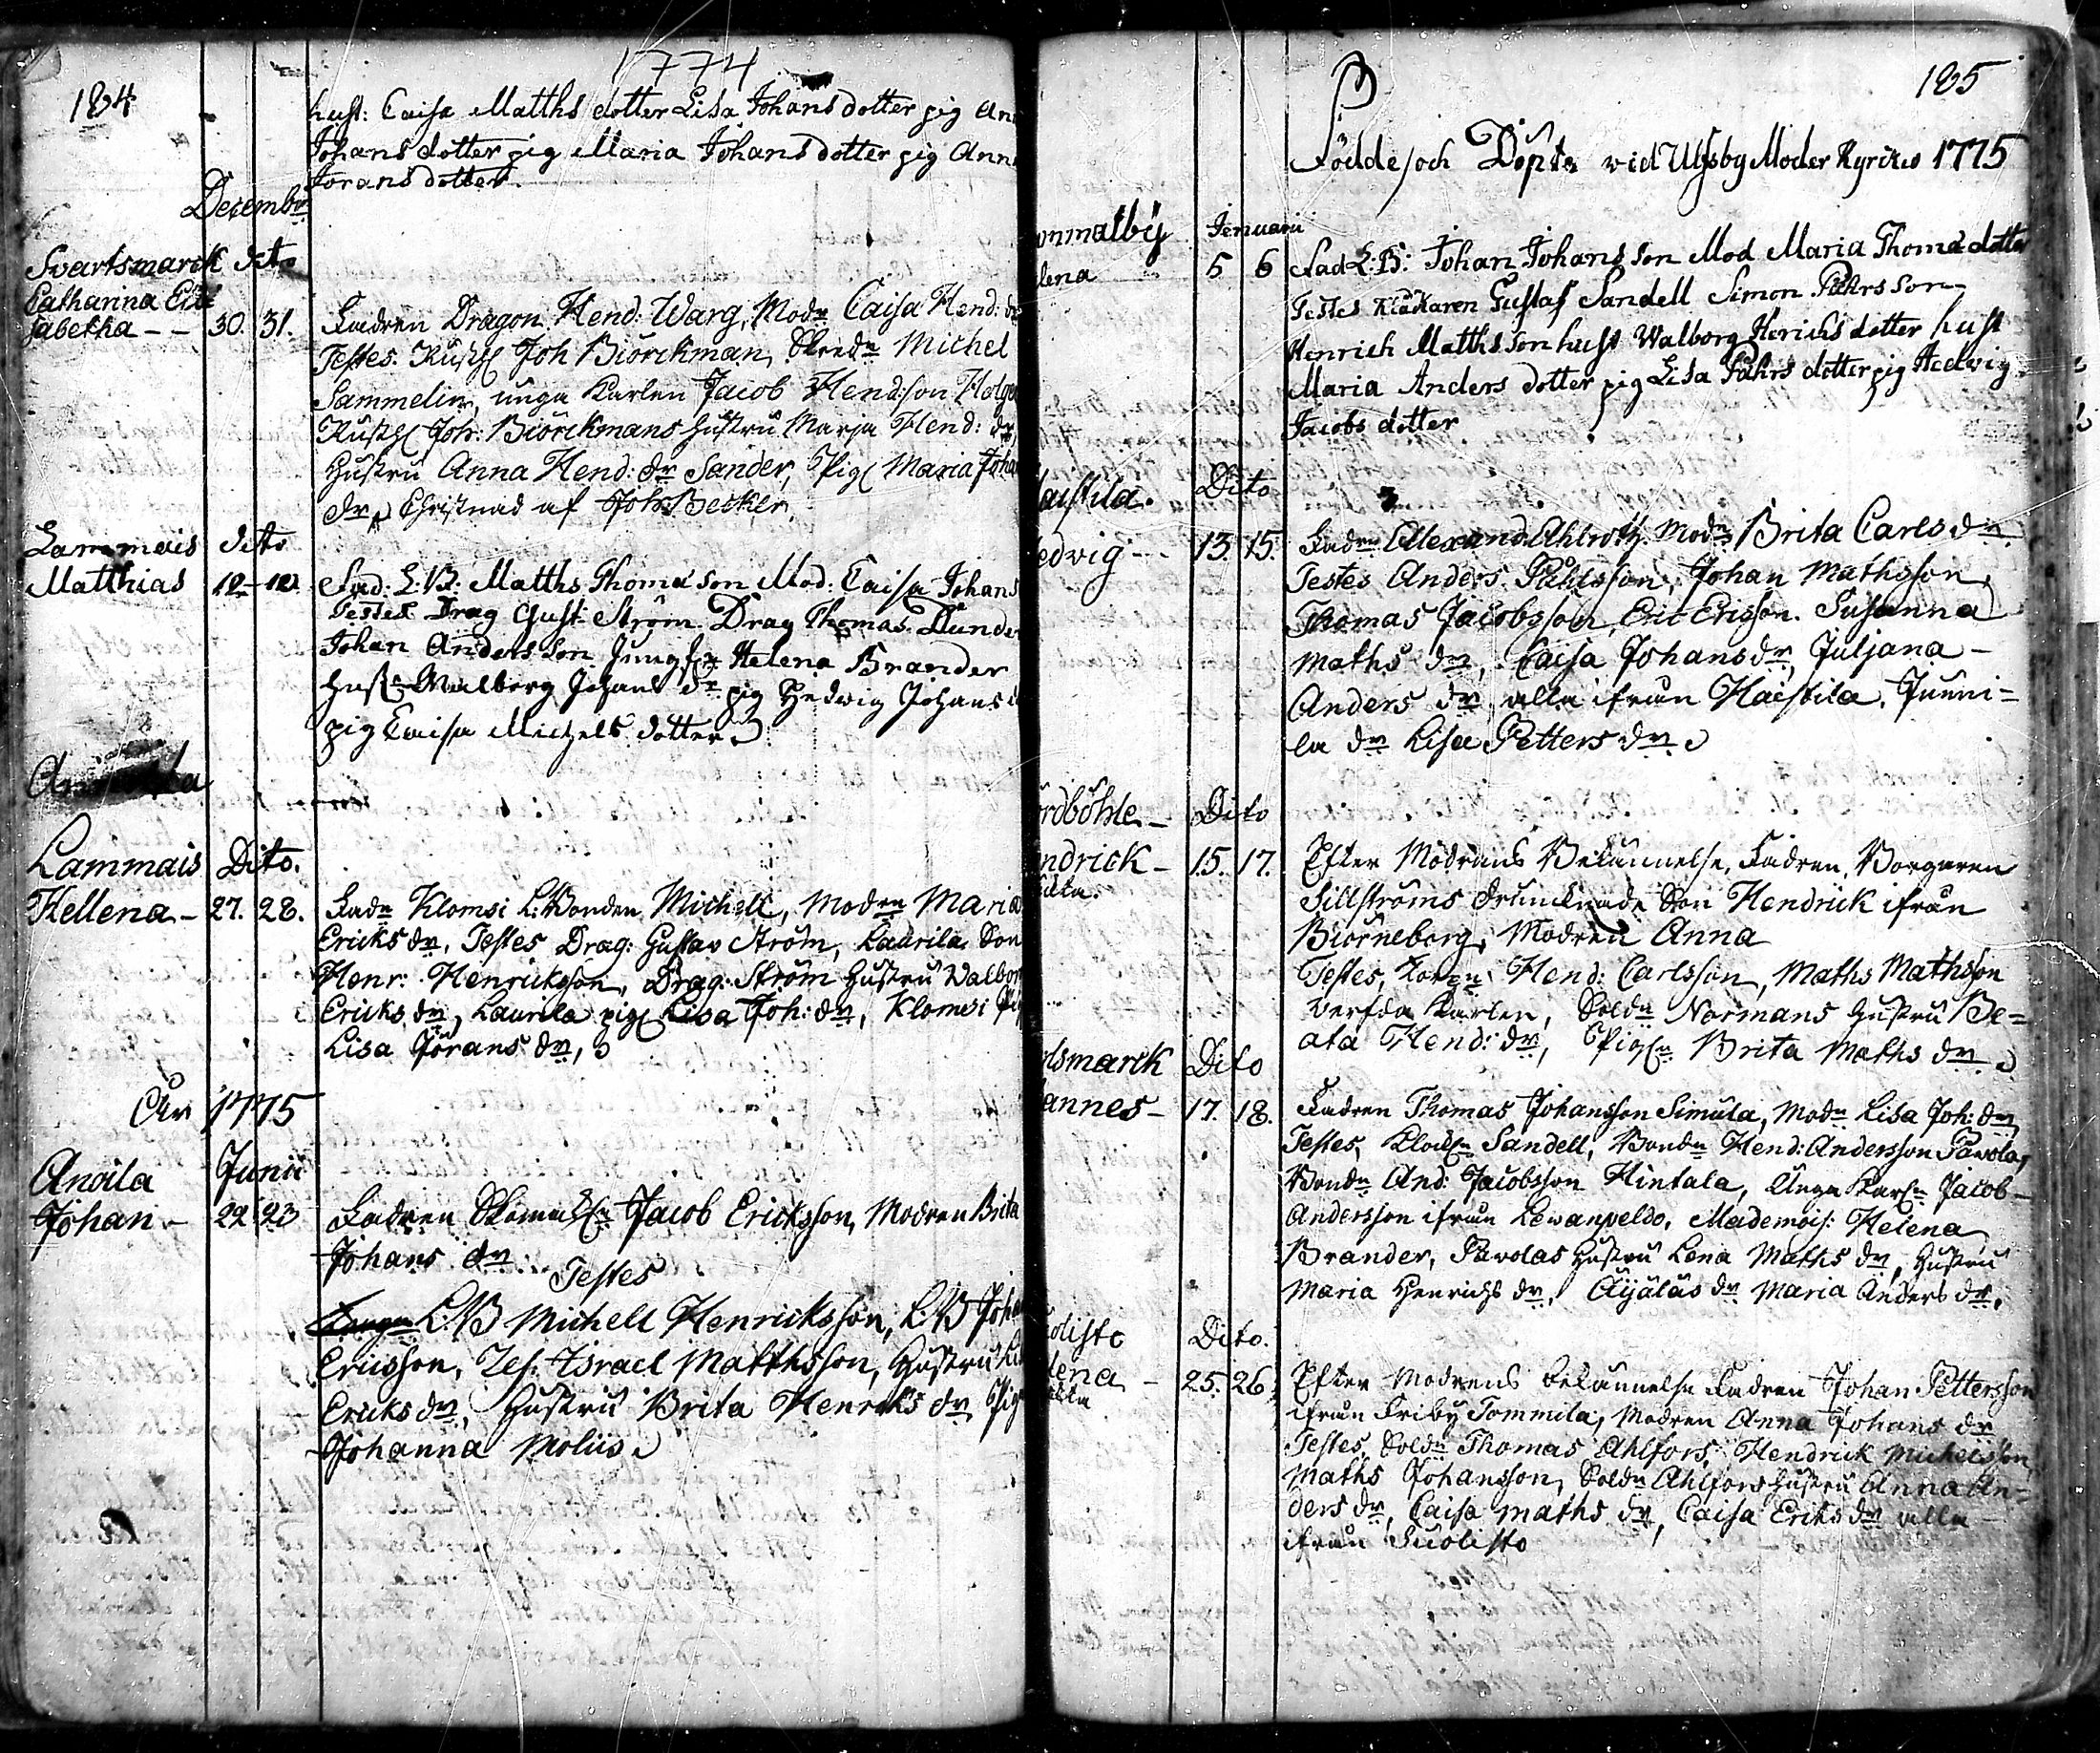 1774
184
hust: Caisa Matths dotter Lisa Johans dotter pig Ann
Johans dotter pig Maria Johans dotter pig Ann
Jorans dotter.
Decembr
Svartsmarck dito
Catharina Eli
sabetha - - 30. 31. Fadren Dragon Hend: Warg, Modr Caisa Hend: dr
Testes. Rusth Joh Biörckman, Skredn Michel
Sammelin, unga Karlen Jacob Hend:son
Rusth Joh: Biörckmans hustru Marja Hend: dr,
Hustru Anna Hend: dr Sander, Pig Maria Joha
dr, Christnad af Joh: Becker,
Lammais dito
Matthias Fad: L:B: Matths Thomæ son Mod: Caisa Johans
Testes Drag Gust: Ström Drag Thomas Dunder
Johan Anders son Jungfr Helena Brander
hust Walborg Johans dr pig Hedvig Johans d
pig Caisa Michels dotter
Lammais Dito.
Hellena - 27. 28. Fadn Klomsi L:Bonden Michell, Modrn Maria
Ericks dr, Testes Drag: Gustav Ström, Laurila Son
Henr: Henricksson, Drag: Ström Hustru Walbor
Ericks dr, Laurila pig Lisa Joh: dr, Klomsi Pig
Lisa Jörans dr,
År 1775
Anoila Junii
Johan - 22 23 Fadren Jacob Ericksson, Modren Brita
Johans dr. Testes
L:B Michell Henricksson, L:B Joha
Ericsson, Israel Matthsson, Hustru
Ericks dr, Hustru Brita Henricks dr, Pig
Johanna Moliis
185
Födde och Döpte vid Ulfsby Moder Kyrckio 1775
onmalby Januarii
lena 5 6 Fad L:B: Johan Johans son Mod Maria Thomæ dotter
Testes Klåckaren Gustaf Sandell Simon Påhrs son
Henrich Matths son hust Walborg Henrichs dotter hust
Maria Anders dotter pig Lisa Påhrs dotter pig Hedvig
Jacobs dotter
aistila. Dito
edvig - - 13. 15. Fadrn Alexand: Ahlroth, Modrn Brita Carls dr
Testes Anders Påhlsson, Johan Mathsson,
Thomas Jacobsson, Eric Ericsson. Susanna
Maths dr, Caisa Johans dr, Juljana -
Anders dr alla ifrån Haistila,
la dr Lisa Petters dr
ordböhle - Dito
ndrick - 15. 17. Efter Modrens Bekännelse, Fadren, Borgaren
Sillströms Son Hendrick ifrån
Biörneborg, Modren Anna
Testes, Hend: Carlsson, Maths Mathsson
Karlen, Soldn Normans Hustru Be=
ata Hend: dr, Pign Brita Maths dr
rtsmarck Dito
annes - 17. 18. Fadren Thomas Johansson Simula, Modn Lisa Joh: dr,
Testes, Klockn Sandell, Bondn Hend: Andersson Pavola,
Bondn And: Jacobsson Hintala, Unga Karln Jacob -
Andersson ifrån Lewanpeldo, Mademois: Helena
Brander, Pavolas Hustru Lena Maths dr, Hustru
Maria Henrichs dr, Äijälas dr Maria Anders dr,
olisto Dito.
lena - 25. 26. Efter Modrens bekännelse Fadren Johan Pettersson
ifrån Friby Tommila, Modren Anna Johans dr
Testes, Soldn Thomas Ahlfors, Hendrick Michelsson
Maths Johansson, Soldn Ahlfors Hustru Anna An=
ders dr, Caisa Maths dr, Caisa Eriks dr alla
ifrån Suolisto